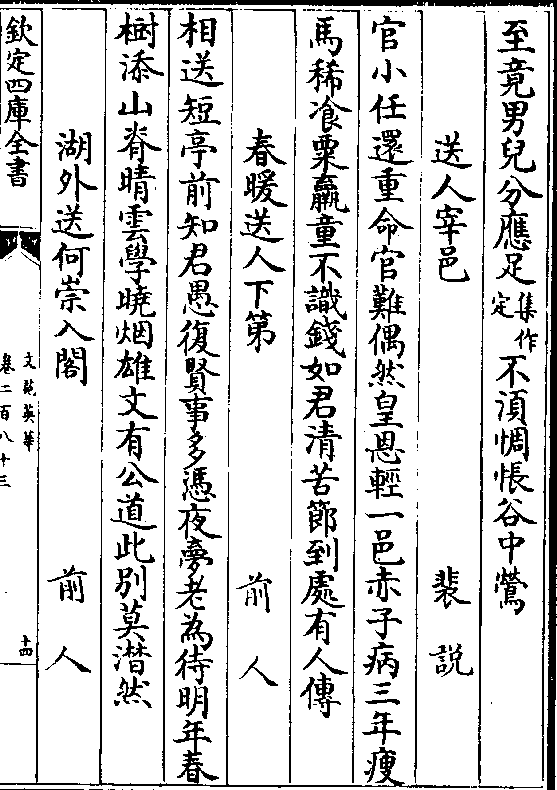 至竟男兒分應足集作定不須惆悵谷中鶯
送人宰邑 裴説
官小任還重命官難偶然皇恩輕一邑赤子病三年瘦
馬稀飡粟羸童不識錢如君清苦節到處有人傳
春暖送人下第 前人
相送短亭前知君愚復賢事多憑夜夢老為待明年春
樹添山脊晴雲學曉烟雄文有公道此别莫潜然
湖外送何崇入閣 前人
欽定四庫全書
文苑英華
卷二百八十三
十四